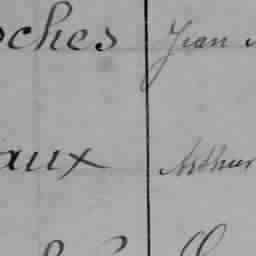 oches Jean
aux Arthur